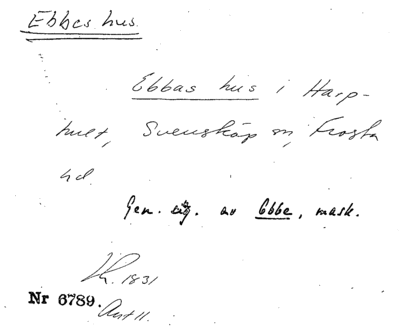 Ebbes hus.
Ebbas hus i Harp-
hult, Svensköp sn, Frosta
hd.
Gen. sg. av Ebbe, mask.
1831
Nr 6789.